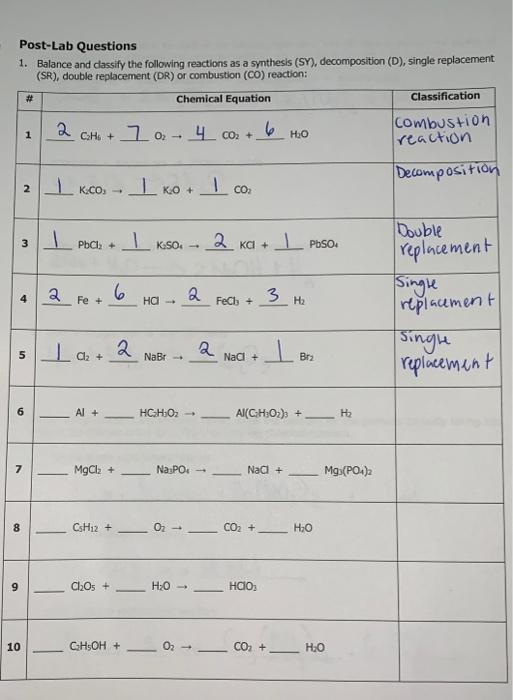 Post-Lab Questions
1. Balance and classify the following reactions as a synthesis (SY), decomposition (D), single replacement
(SR), double replacement (DR) or combustion (CO) reaction:
# Chemical Equation Classification
1 2 C₂H₆ + 7 O₂ → 4 CO₂ + 6 H₂O combustion
reaction
2 1 K₂CO₃ → 1 K₂O + 1 CO₂ Decomposition
3 1 PbCl₂ + 1 K₂SO₄ → 2 KCl + 1 PbSO₄ Double
replacement
4 2 Fe + 6 HCl → 2 FeCl₃ + 3 H₂ Single
replacement
5 1 Cl₂ + 2 NaBr → 2 NaCl + 1 Br₂ Single
replacement
6 ___ Al + ___ HC₂H₃O₂ → ___ Al(C₂H₃O₂)₃ + ___ H₂
7 ___ MgCl₂ + ___ Na₃PO₄ → ___ NaCl + ___ Mg₃(PO₄)₂
8 ___ C₅H₁₂ + ___ O₂ → ___ CO₂ + ___ H₂O
9 ___ Cl₂O₅ + ___ H₂O → ___ HClO₃
10 ___ C₂H₅OH + ___ O₂ → ___ CO₂ + ___ H₂O